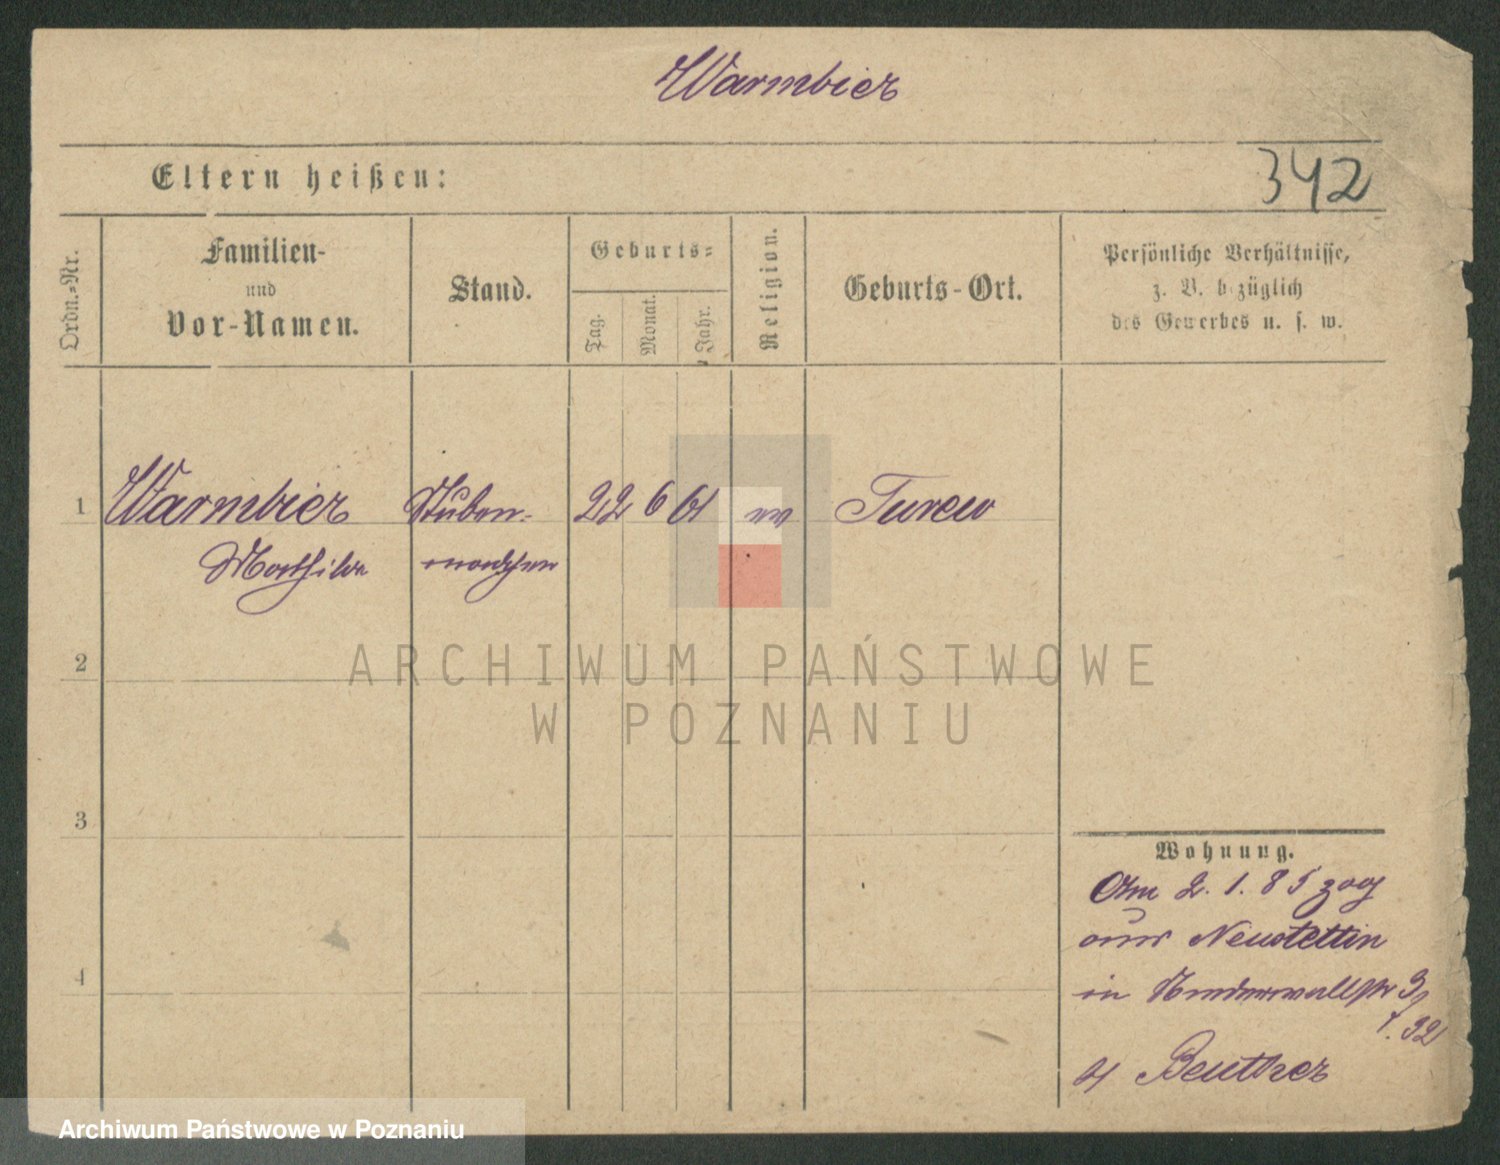 Warmbier
Eltern heißen:
342
Ordn.-Nr.
Familien-
und
Vor-Namen.
Stand.
Geburts-
Tag.
Monat.
Jahr.
Religion.
Geburts-Ort.
Persönliche Verhältnisse,
z. B. bezüglich
des Gewerbes u. s. w.
1
Warmbier
Stuben-
22 6 61
Turew
Mathilde
mädchen
ARCHIWUM PAŃSTWOWE
W POZNANIU
2
3
4
Wohnung.
Am 2. 1. 85 zog
aus Neustettin
in
3
Beuther
Archiwum Państwowe w Poznaniu